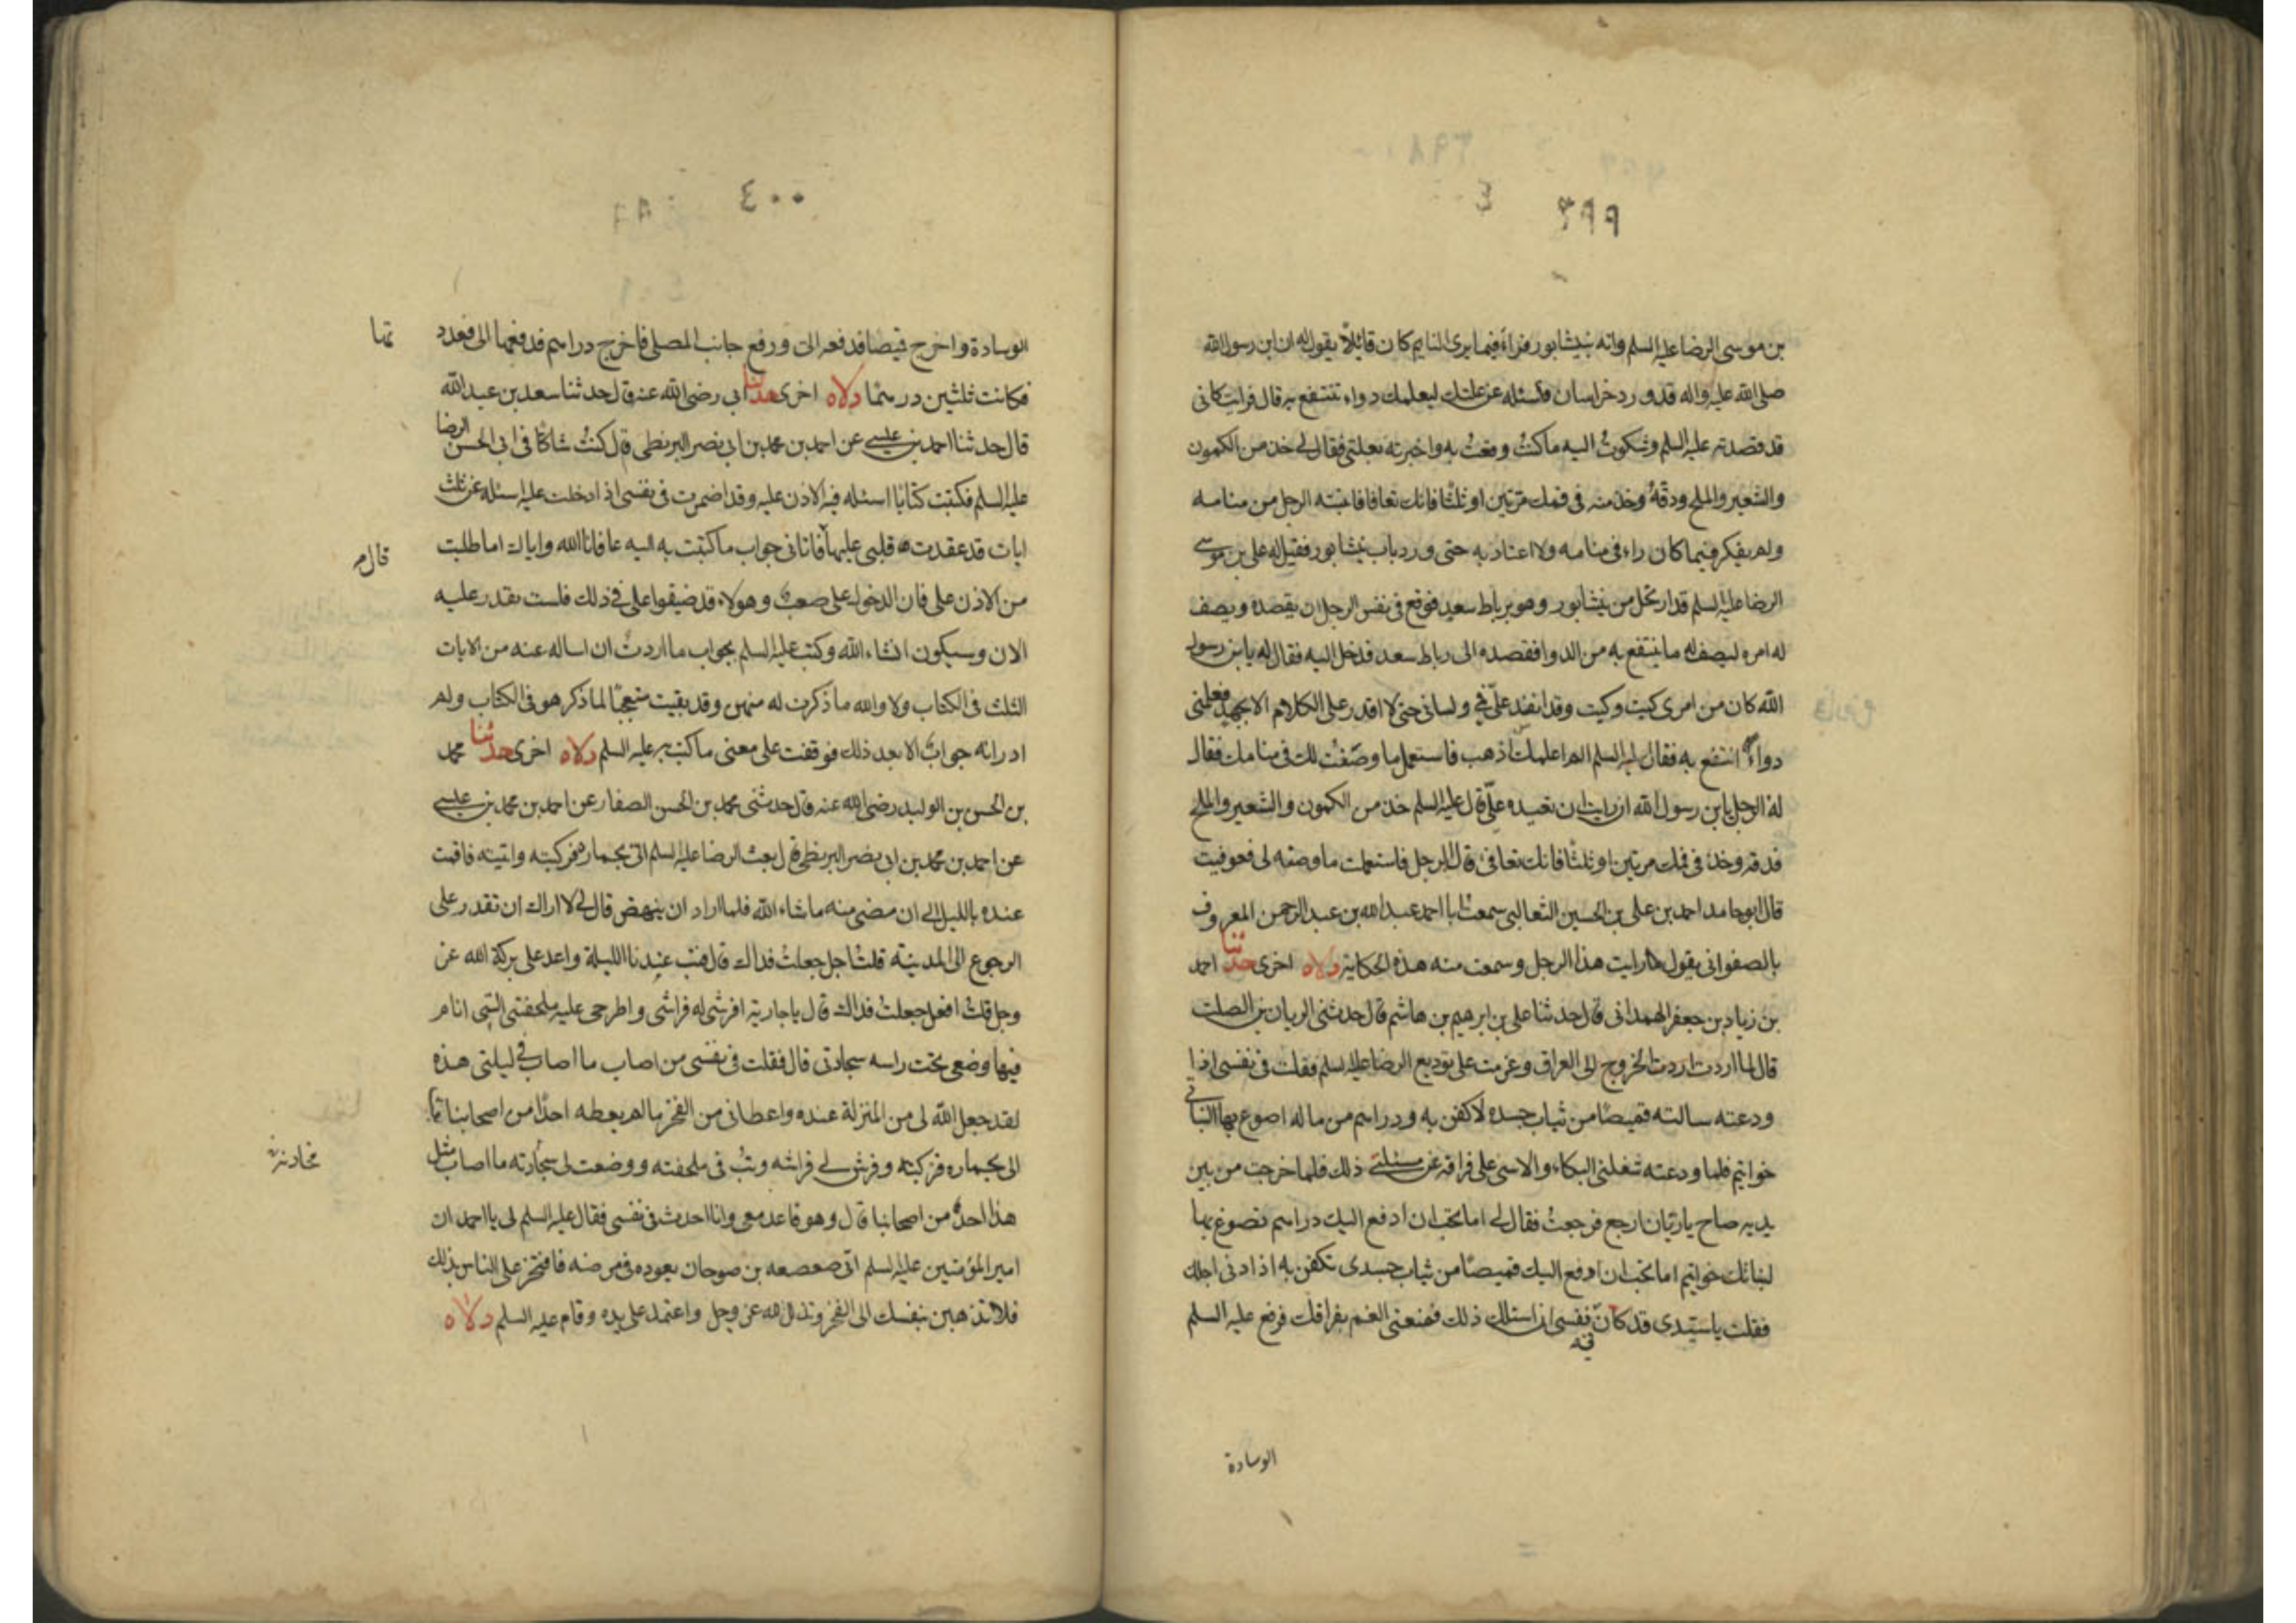 ٣٩٩
بن موسى الرضا عليه السلم وانه بنيشابور فراء فيما يرى النايم كان قائلاً يقول له ان ابن رسول الله
صلى الله عليه واله قد ورد خراسان فاسئله عن علتك ليعلمك دواء تنتفع به قال فرايت كانى
قد قصدته عليه السلم وشكوت اليه ما كنت وقعت به واخبرته بعلتى فقال لى خذ من الكمون
والشعير والملح ودقه وخذ منه فى فمك مرتين او ثلثا فانك تعافا فانتبه الرجل من منامه
ولم يفكر فيما كان راء فى منامه ولا اعتاد به حتى ورد باب نيشابور فقيل له على بن موسى
الرضا عليه السلم قد ارتحل من نيشابور وهو برباط سعيد فوقع فى نفس الرجل ان يقصده ويصف
له امره ليصف له ما ينتفع به من الدوا فقصده الى رباط سعد فدخل اليه فقال له يا بن رسول
الله كان من امرى كيت وكيت وقد انفسد علىّ فمى ولسانى حتى لا اقدر على الكلام الا بجهد فعلمنى
دواء انتفع به فقال عليه السلم الم اعلمك اذهب فاستعمل ما وصفت لك فى منامك فقال
له الرجل يابن رسول الله ان رايت ان تعيده علىّ قال عليه السلم خذ من الكمون والشعير والملح
فدقه وخذ فى فمك مرتين او ثلثا فانك تعافى قال الرجل فاستعملت ما وصفه لى فعوفيت
قال ابو حامد احمد بن على بن الحسين الثعالبى سمعت ابا احمد عبد الله بن عبد الرحمن المعروف
بالصفوانى يقول رايت هذا الرجل وسمعت منه هذه الحكاية دلاله اخرى حدثنا احمد
بن زياد بن جعفر الهمدانى قال حدثنا على بن ابرهيم بن هاشم قال حدثنى الريان بن الصلت
قال لما اردت اردت الخروج الى العراق وعزمت على توديع الرضا عليه السلم فقلت فى نفسى اذا
ودعته سالته قميصا من ثياب جسده لاكفن به ودراهم من ماله اصوع بها لبناتى
خواتيم فلما ودعته شغلنى البكاء والاسى على فراقه عن مسئلته ذلك فلما خرجت من بين
يديه صاح يا ريان ارجع فرجعت فقال لى اما تحب ان ادفع اليك دراهم تصوغ بها
لبناتك خواتيم اما تحب ان ادفع اليك قميصا من ثياب جسدى تكفن به اذا دنى اجلك
فقلت يا سيدى قد كان فى نفسى ان اسئلك ذلك فمنعنى الغم بفراقك فرفع عليه السلم
الوسادة
٤٠٠
الوسادة واخرج قميصا فدفعه الى ورفع جانب المصلى فاخرج دراهم فدفعها الى فعدد
تها
فكانت ثلثين درهما دلاله اخرى حدثنا ابى رضى الله عنه قال حدثنا سعد بن عبد الله
قال حدثنا احمد بن عيسى عن احمد بن محمد بن ابى نصر البزنطى قال كنت شاكا فى ابى الحسن الرضا
عليه السلم فكتبت كتابا اسئله فيه الاذن عليه وقد اضمرت فى نفسى اذا دخلت عليه اسئله عن ثلث
ايات قد عقدت قلبى عليها فاتانى جواب ما كتبت به اليه عافانا الله واياك اما طلبت
قال م
من الاذن على فان الدخول على صعب وهولاء قد ضيقوا على فى ذلك فلست تقدر عليه
الان وسيكون انشاء الله وكتب عليه السلم بجواب ما اردت ان اساله عنه من الايات
الثلث فى الكتاب ولا والله ما ذكرت له منهن وقد بقيت متعجبا لما ذكر هو فى الكتاب ولم
ادر انه جوابى الا بعد ذلك فوقفت على معنى ما كتب به عليه السلم دلاله اخرى حدثنا محمد
بن الحسن بن الوليد رضى الله عنه قال حدثنى محمد بن الحسن الصفار عن احمد بن محمد بن عيسى
عن احمد بن محمد بن ابى نصر البزنطى قال بعث الرضا عليه السلم الى بحمار فركبته واتيته فاقمت
عنده بالليل الى ان مضى منه ما شاء الله فلما اراد ان ينهض قال لى لا اراك ان تقدر على
الرجوع الى المدينة قلت اجل جعلت فداك قال فبت عندنا الليلة واعد على بركة الله عز
وجل قلت افعل جعلت فداك قال يا جارية افرشى له فراشى واطرحى عليه ملحفتى التى انام
فيها وضعى تحت راسه سجادتى قال فقلت فى نفسى من اصاب ما اصاب فى ليلتى هذه
لقد جعل الله لى من المنزلة عنده واعطانى من الفخر ما لم يعطه احدا من اصحابنا
الى بحماره فركبته وفرش لى فراشه وبت فى ملحفته ووضعت لى سجادته ما اصاب مثل
مخادنه
هذا احد من اصحابنا قال وهو قاعد معى وانا احدث فى نفسى فقال عليه السلم لى يا احمد ان
امير المؤمنين عليه السلم اتى صعصعه بن صوحان يعوده فى مرضه فافتخر على الناس بذلك
فلا تذهبن بنفسك الى الفخر وتذلل لله عز وجل واعتمد على يده وقام عليه السلم دلاله